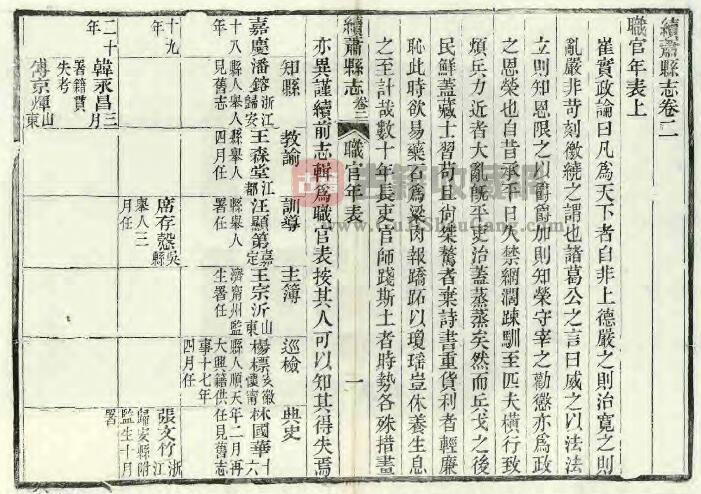 續蕭縣志卷二
職官年表上
崔實政論曰凡為天下者自非上德嚴之則治寬之則
亂嚴非苛刻徽繞之謂也諸葛公之言曰威之以法法
立則知恩限之以爵爵加則知榮守宰之勸懲亦為政
之恩榮也自昔承平日久禁網濶踈馴至匹夫橫行致
煩兵力近者大亂既平吏治蓋蒸蒸矣然而兵戈之後
民鮮蓋藏士習苟且尚桀驁者棄詩書重貨利者輕廉
恥此時欲易藥石為粱肉報蹻跖以瓊瑤豈休養生息
之至計哉數十年長吏官師踐斯土者時勢各殊措畫
續蕭縣志 卷二 職官年表 一
亦異謹續前志輯為職官表按其人可以知其得失焉
知縣 教諭 訓導 主簿 巡檢 典史
嘉慶十八年
潘鎔 浙江歸安縣人舉人見舊志
王森堂 江都縣舉人四月任
汪顯第 嘉定縣舉人署任
王宗沂 山東濟甯州監生署任
楊標 安徽懷甯縣人順天大興籍供事十七年四月任
林國華 十六年二月再任見舊志
十九年
席存愨 吳縣舉人三月任
張文竹 浙江歸安縣附監生十月署
二十年
韓永昌 三月署籍貫失考
傅京輝 山東